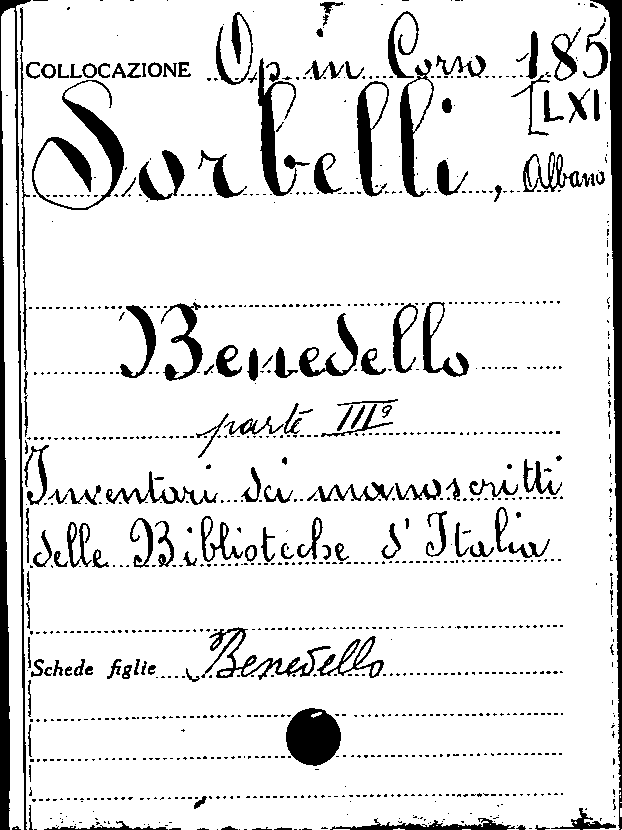 COLLOCAZIONE Op. in Corso 185
[LXI
Sorbelli, Albano
Benedello
parte IIIª
Inventari dei manoscritti
delle Biblioteche d'Italia
Schede figlie Benedello